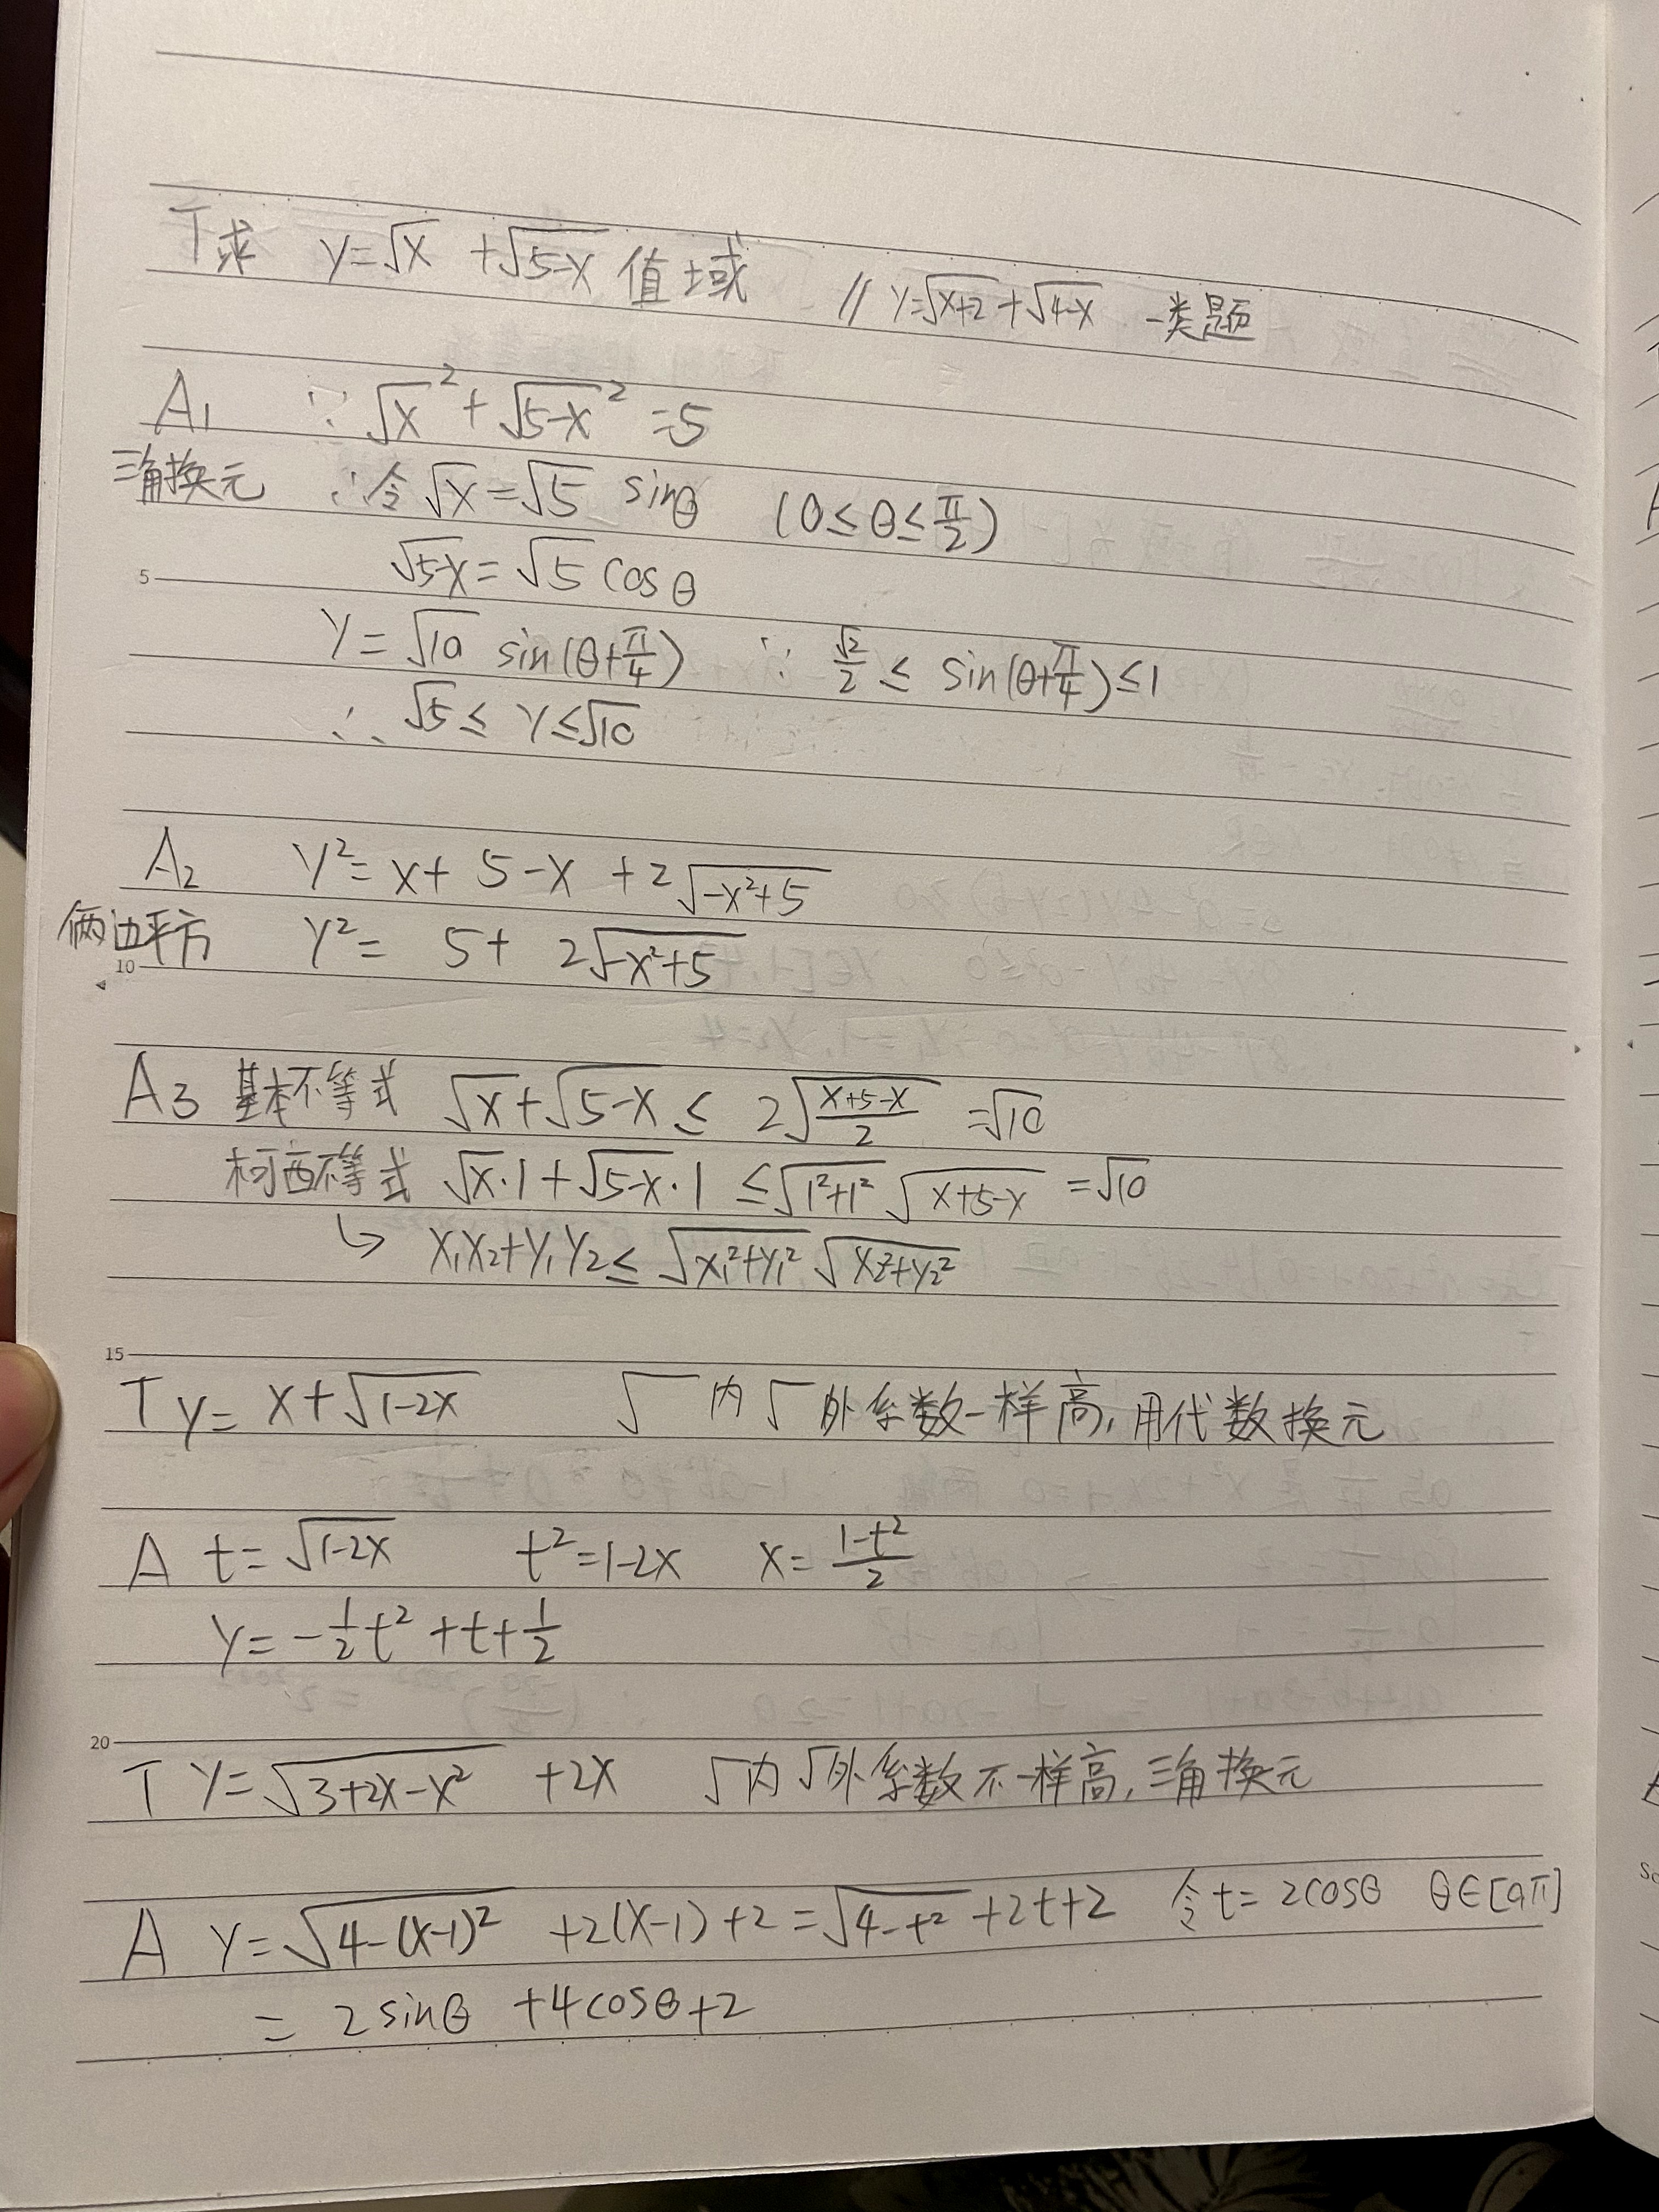 T求 y=√x +√5-x 值域 // y=√x+2 +√4-x 一类题
A₁ ∵ √x² + √5-x² =5
三角换元 ∴令 √x =√5 sinθ (0≤θ≤π/2)
√5-x = √5 cosθ
5
y = √10 sin(θ+π/4) ∵ √2/2 ≤ sin(θ+π/4)≤1
∴ √5 ≤ y≤√10
A₂ y²= x+ 5-x +2√-x²+5
两边平方 y²= 5+ 2√-x²+5
10
A3 基本不等式 √x+√5-x ≤ 2√x+5-x/2 =√10
柯西不等式 √x·1+√5-x·1 ≤√1²+1² √x+5-x =√10
↳ x₁x₂+y₁y₂≤ √x₁²+y₁² √x₂²+y₂²
15
T y= x+√1-2x √内√外系数一样高,用代数换元
A t=√1-2x t²=1-2x x=1-t²/2
y=-1/2t²+t+1/2
20
T y=√3+2x-x² +2x √内√外系数不一样高,三角换元
A y=√4-(x-1)² +2(x-1)+2 =√4-t² +2t+2 令t=2cosθ θ∈[0,π]
= 2sinθ +4cosθ+2